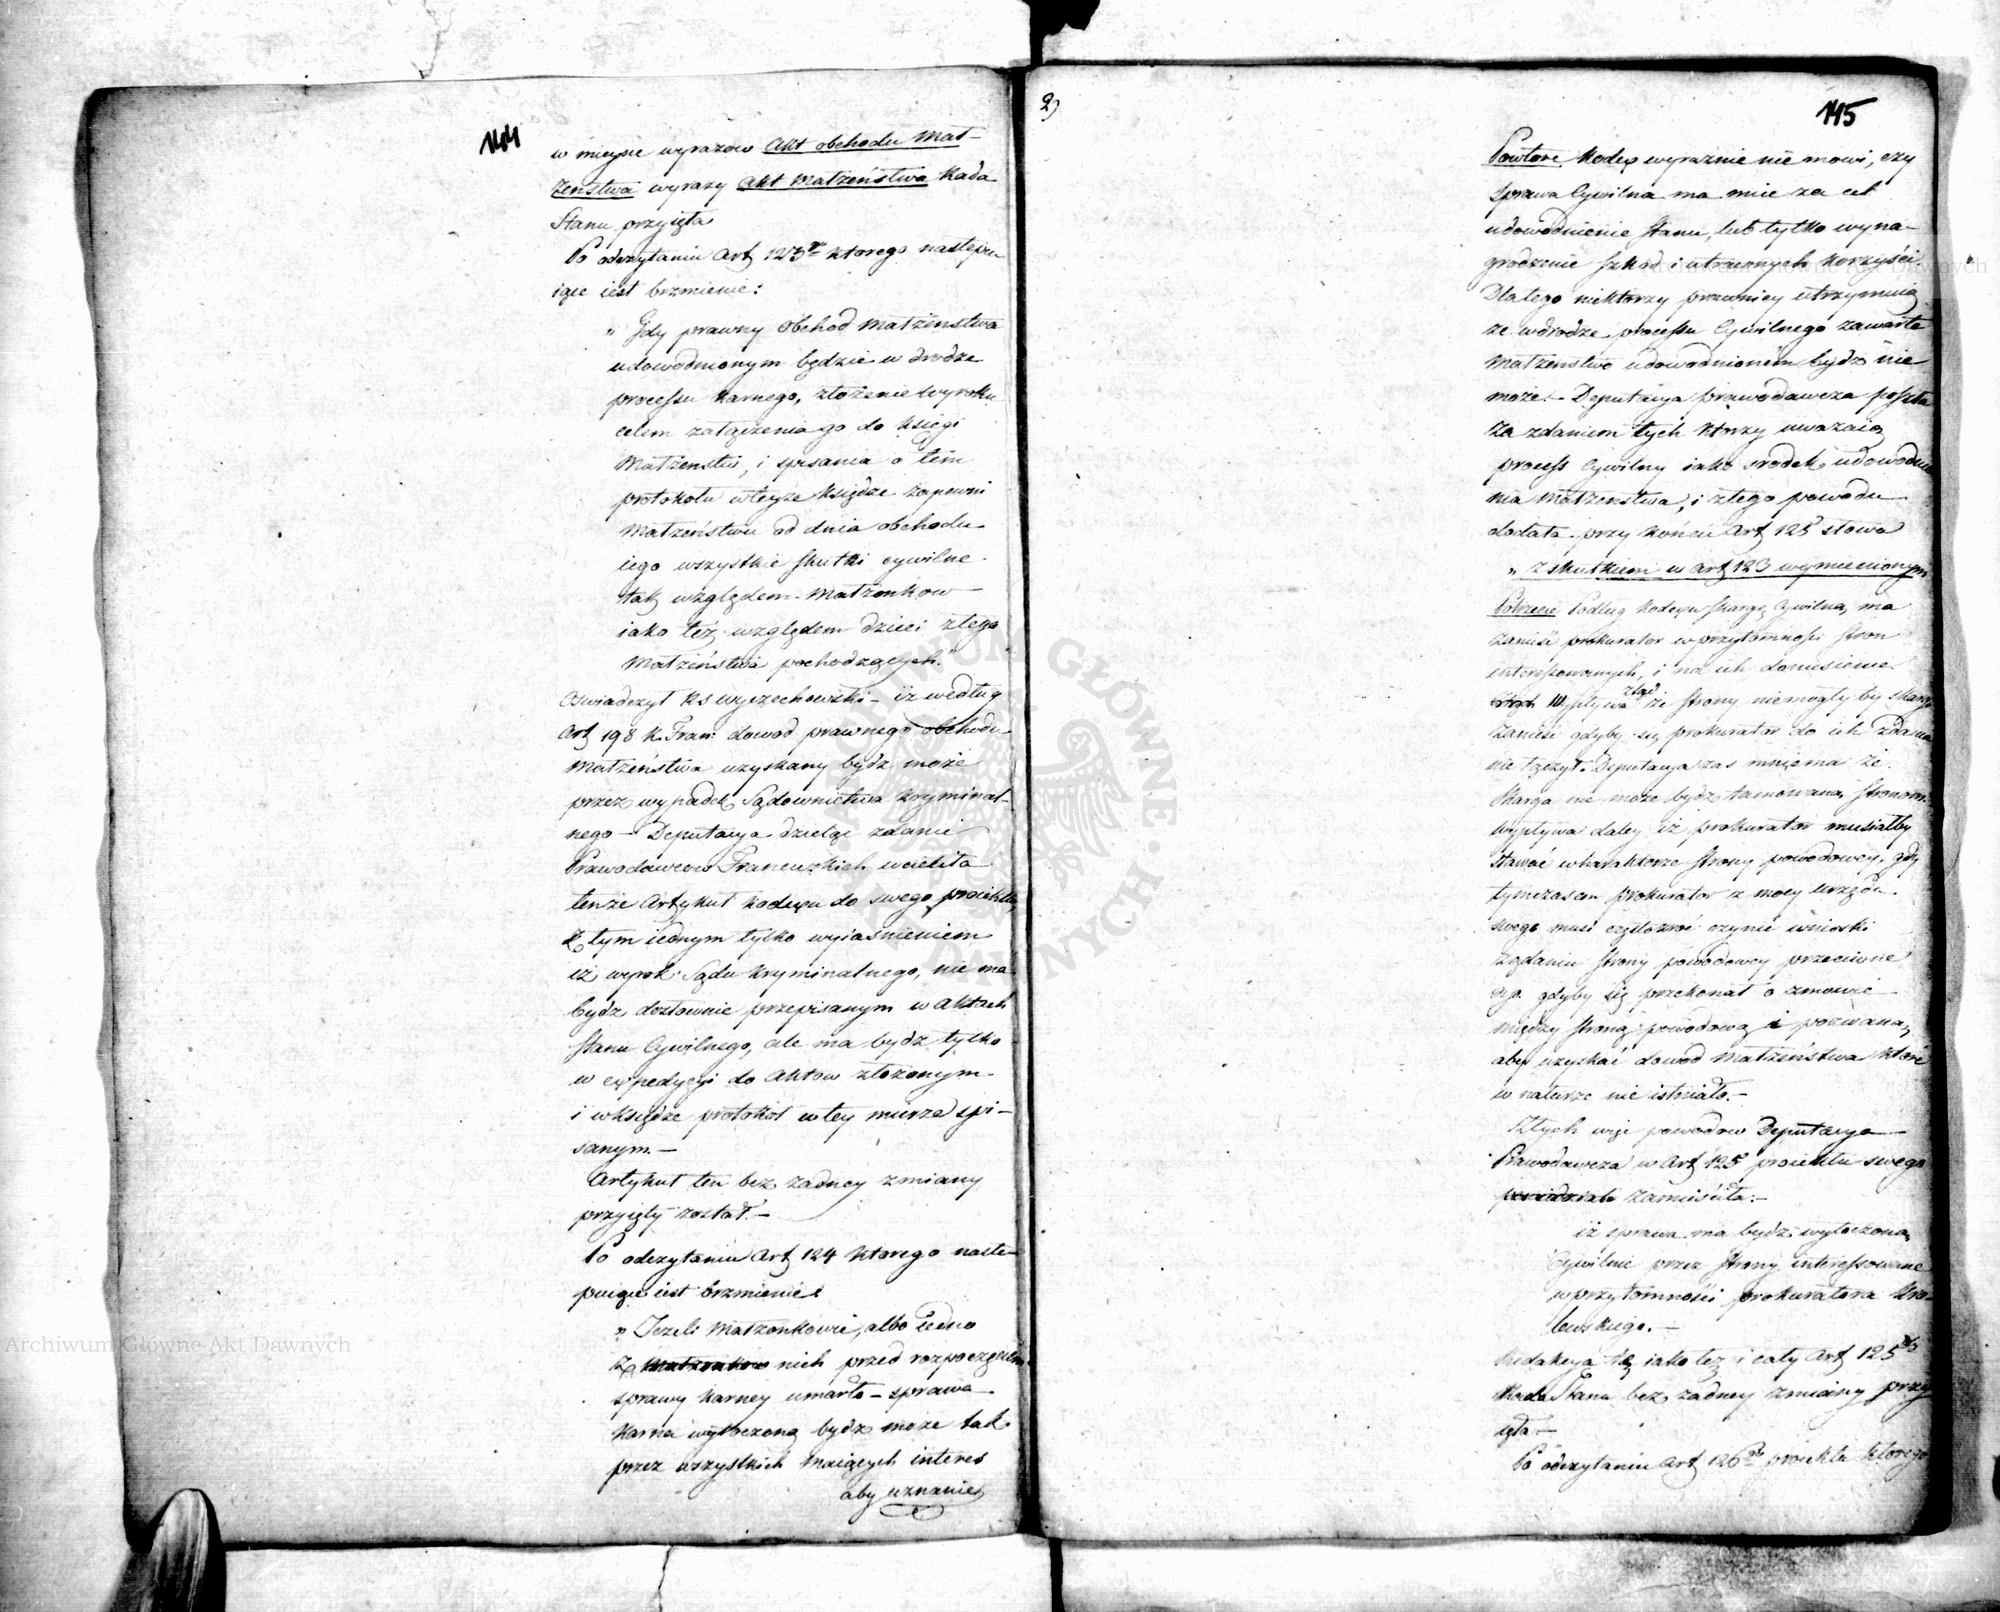 144
w mieysce wyrazow Akt obchodu Mał-
żenstwa wyrazy Akt Małżeństwa Rada
Stanu przyięła
Po odczytaniu Art 123go ktorego następu
iące iest brzmienie:
„ Gdy prawny obchod Małżenstwa
udowodnionym będzie w drodze
processu karnego, złożenie wyroku
celem załączenia go do księgi
Małżenstw, i spisania o tem
protokołu w teyże księdze zapewni
Małżeństwu od dnia obchodu
iego wszystkie skutki cywilne
tak względem Małżonkow
iako też względem dzieci z tego
Małżeństwa pochodzących."
Oswiadczył KS Wyczechowski - iż według
Art 198 K. Fran: dowod prawnego obchodu
Małżeństwa uzyskany bydz może
przez wypadek Sądownictwa kryminal-
nego - Deputacya dzieląc zdanie
Prawodawcow Francuzkich wcieliła
tenże Artykuł kodexu do swego proiektu,
z tym iednym tylko wyiasnieniem
iż wyrok Sądu kryminalnego, nie ma
bydz dosłownie przepisanym w Aktach
Stanu Cywilnego, ale ma bydz tylko
w expedycyi do Aktow złożonym
i w księdze protokoł w tey mierze spi-
sanym. -
Artykuł ten bez żadney zmiany
przyięty został. -
Po odczytaniu Art 124 ktorego nastę-
puiące iest brzmienie:
„ Jeżeli Małżonkowie, albo iedno
z Małżonkow nich przed rozpoczęciem
sprawy karney umarło - sprawa
karna wytoczoną bydz może tak
przez wszystkich maiących interes
aby uznanie
2)
145
Powtore Kodex wyraznie nie mowi, czy
sprawa Cywilna ma miec za cel
udowodnienie Stanu, lub tylko wyna-
grodzenie szkod i utraconych korzyści.
Dla tego niektorzy prawnicy utrzymuią
ze w drodze processu Cywilnego zawarte
Małżenstwo udowodnionem bydz nie
może. - Deputacya prawodawcza poszła
za zdaniem tych ktorzy uważaią
process Cywilny iako srodek udowodnie
nia Małżenstwa, i z tego powodu
dodała przy końcu Art 125 słowa
„ z skutkiem w Art 123 wymienionym
Potrzecie Podług kodexu skargę Cywilną ma
zanieść prokurator w przytomności stron
interessowanych, i na ich doniesienie
wypływa ztąd że strony niemogły by skargi
zanieść gdyby się prokurator do ich zdania
nie łączył. Deputacya zas mniema że
skarga nie może bydz tamowana stronom.
Wypływa daley iż prokurator musiałby
stawać w charakterze strony powodowey, gdy
tymczasem prokurator z mocy urzędu
swego musi częstokroć czynić wnioski
żądaniu strony powodowey przeciwne
np. gdyby się przekonał o zmowie
między stroną powodową i pozwaną,
aby uzyskać dowod Małżeństwa które
w naturze nie istniało. -
Z tych więc powodow Deputacya
Prawodawcza w Art 125 proiektu swego
zamieściła: -
iż sprawa ma bydz wytoczona
Cywilnie przez strony interessowane
w przytomności prokuratora Kro-
lewskiego. -
Redakcyą tę iako też i cały Art 125ty
Rada Stanu bez żadney zmiany przy
ięła. -
Po odczytaniu Art 126go proiektu ktorego
Archiwum Główne Akt Dawnych